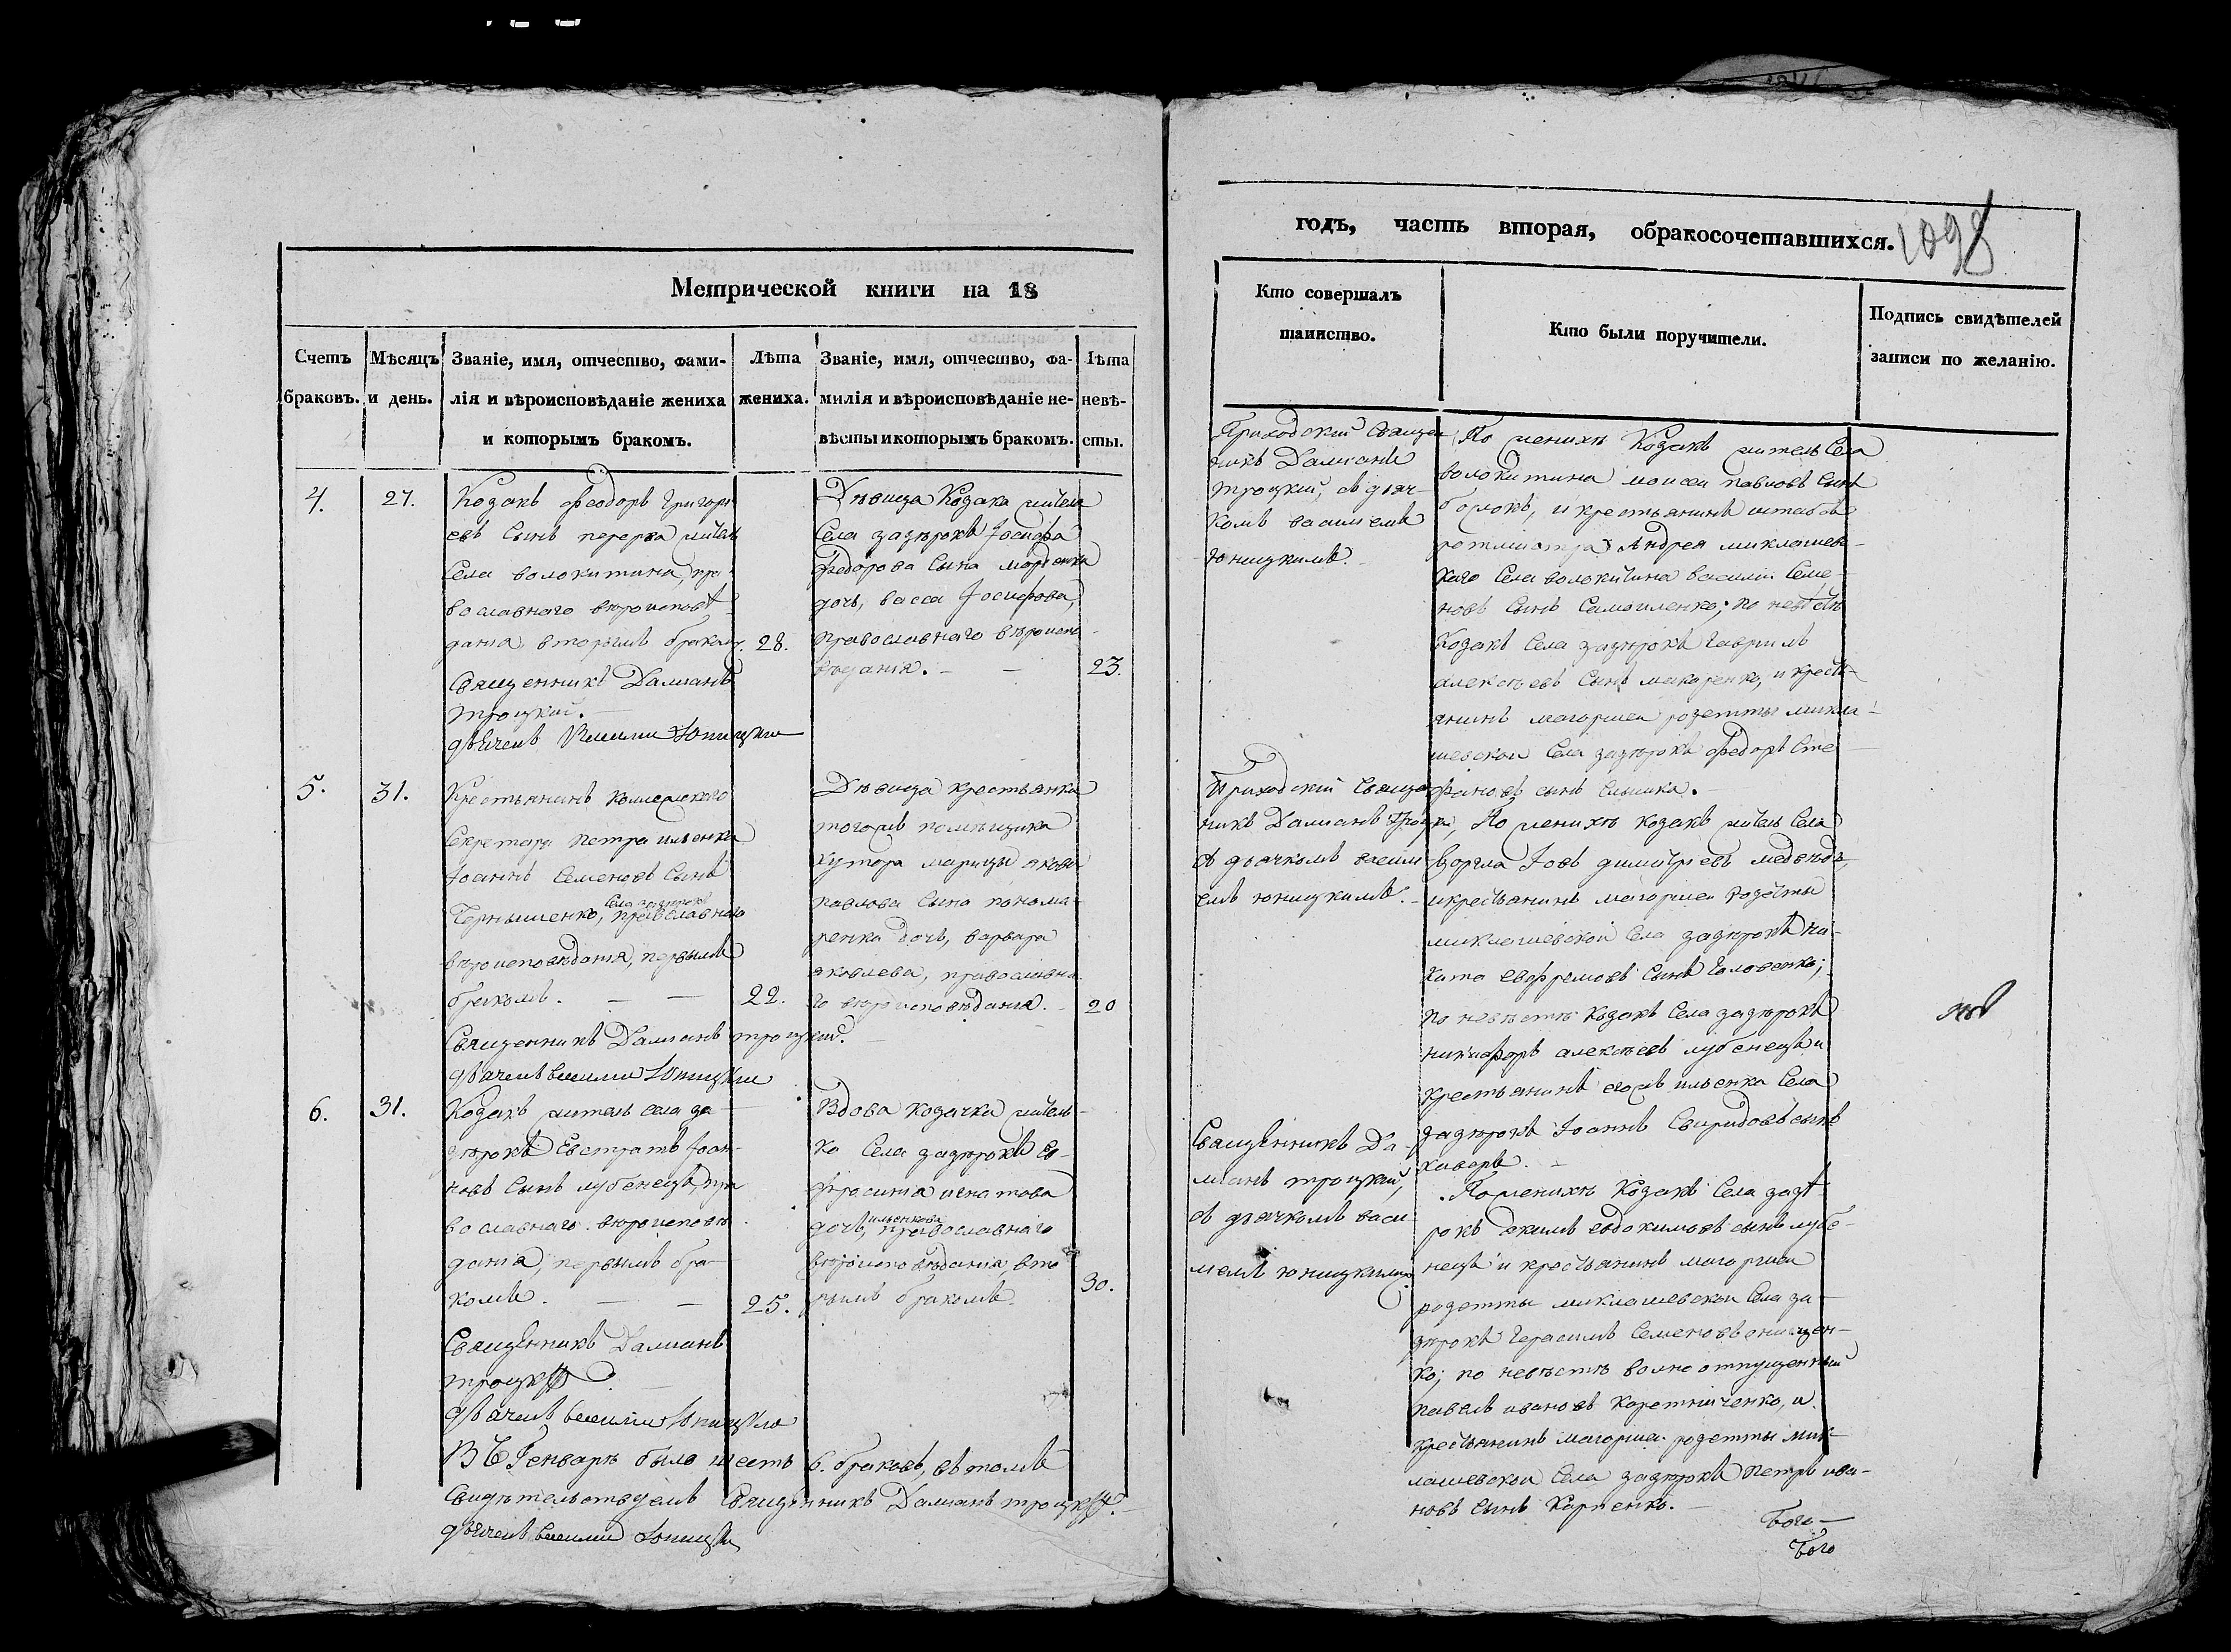 Метрической книги на 18
Счетъ браковъ.
Мѣсяцъ и день.
Званіе, имя, отчество, фами-
лія и вѣроисповѣданіе жениха
и которымъ бракомъ.
Лѣта
жениха.
Званіе, имя, отчество, фа-
милія и вѣроисповѣданіе не-
вѣсты и которымъ бракомъ.
Лѣта
невѣ-
сты.
4.
27.
Козакъ Феодоръ Григорі
евъ Сынъ перерва житель
Села волокитина, пра
вославнаго вѣроисповѣ
данія, вторымъ бракомъ.
28.
Священникъ Даміанъ
троцкій.
дьячекъ Василій Юницкій
Дѣвица Козака жителя
Села задѣрокъ Іосифа
Федорова Сына
дочь, васса Іосифова,
православнаго вѣроиспо
вѣданія.
23.
5.
31.
Крестьянинъ Коллежскаго
Секретаря Петра ильенка
Іоаннъ Семеновъ Сынъ
Села задѣрокъ
Чернышенко, православнаго
вѣроисповѣданія, первымъ
бракомъ.
22.
Священникъ Даміанъ троцкій.
дьячекъ василій Юницкій
Дѣвица крестьянка
тогожъ помѣщика
хутора марицы якова
павлова Сына понома-
ренка дочь, варвара
яковлева, православна
го вѣроисповѣданія.
20
6.
31.
Козакъ житель села за-
дѣрокъ Евстратъ Іоан-
новъ Сынъ лубенецъ, пра
вославнаго вѣроисповѣ
данія, первымъ бра-
комъ.
25.
Священникъ Даміанъ
троцкій
дьячекъ василій Юницкій
Вдова козачка житель-
ка Села задѣрокъ Ев-
фросинія игнатова
ильенкова
дочь, православнаго
вѣроисповѣданія, вто
рымъ бракомъ.
30.
Въ Генварѣ было шесть 6. браковъ, въ томъ
Свидѣтельствуемъ Священникъ Даміанъ троцкій.
дьячекъ василій Юницкій
годъ, часть вторая, обракосочетавшихся.
1098
Кто совершалъ
таинство.
Кто были поручители.
Подпись свидѣтелей
записи по желанію.
Приходскій Священ
никъ Даміанъ
троцкій, съ дьяч-
комъ василіемъ
Юницкимъ.
По женихѣ Козакъ житель Села
волокитина моисей павловъ Сынъ
и крестьянинъ штабсъ
ротмистра Андрея миклашевс-
каго Села волокитина василій Семе-
новъ Сынъ Самойленко; по невѣстѣ
Козакъ Села задѣрокъ Гавріилъ
алексѣевъ Сынъ макаренко, и кресть-
янинъ маіорши розетты микла-
шевской Села задѣрокъ Федоръ Сте
фановъ сынъ
Приходскій Священ
никъ Даміанъ троцкій,
съ дьячкомъ васил
емъ юницкимъ.
По женихѣ козакъ житель Села
Іовъ димитріевъ медвѣдь,
и крестьянинъ маіорши Розетты
миклашевской Села задѣрокъ ни-
кита евфремовъ Сынъ Головенко;
по невѣстѣ Козакъ Села задѣрокъ
никифоръ алексѣевъ лубенецъ и
крестьянинъ егожъ ильенка Села
задѣрокъ Іоаннъ Свиридовъ сынъ
Священникъ Да-
міанъ троцкій,
съ дьячкомъ васи
ліемъ юницкимъ.
По женихѣ Козакъ Села задѣ
рокъ Екимъ евдокимовъ сынъ лубе-
нецъ и крестьянинъ маіорши
розетты миклашевской Села за-
дѣрокъ Герасимъ Семеновъ онищен-
ко; по невѣстѣ вольноотпущенный
павелъ ивановъ Каретниченко, и
крестьянинъ маіорши розетты мик-
лашевской Села задѣрокъ петръ ива-
новъ сынъ Карпенко.
Бого-
Бого